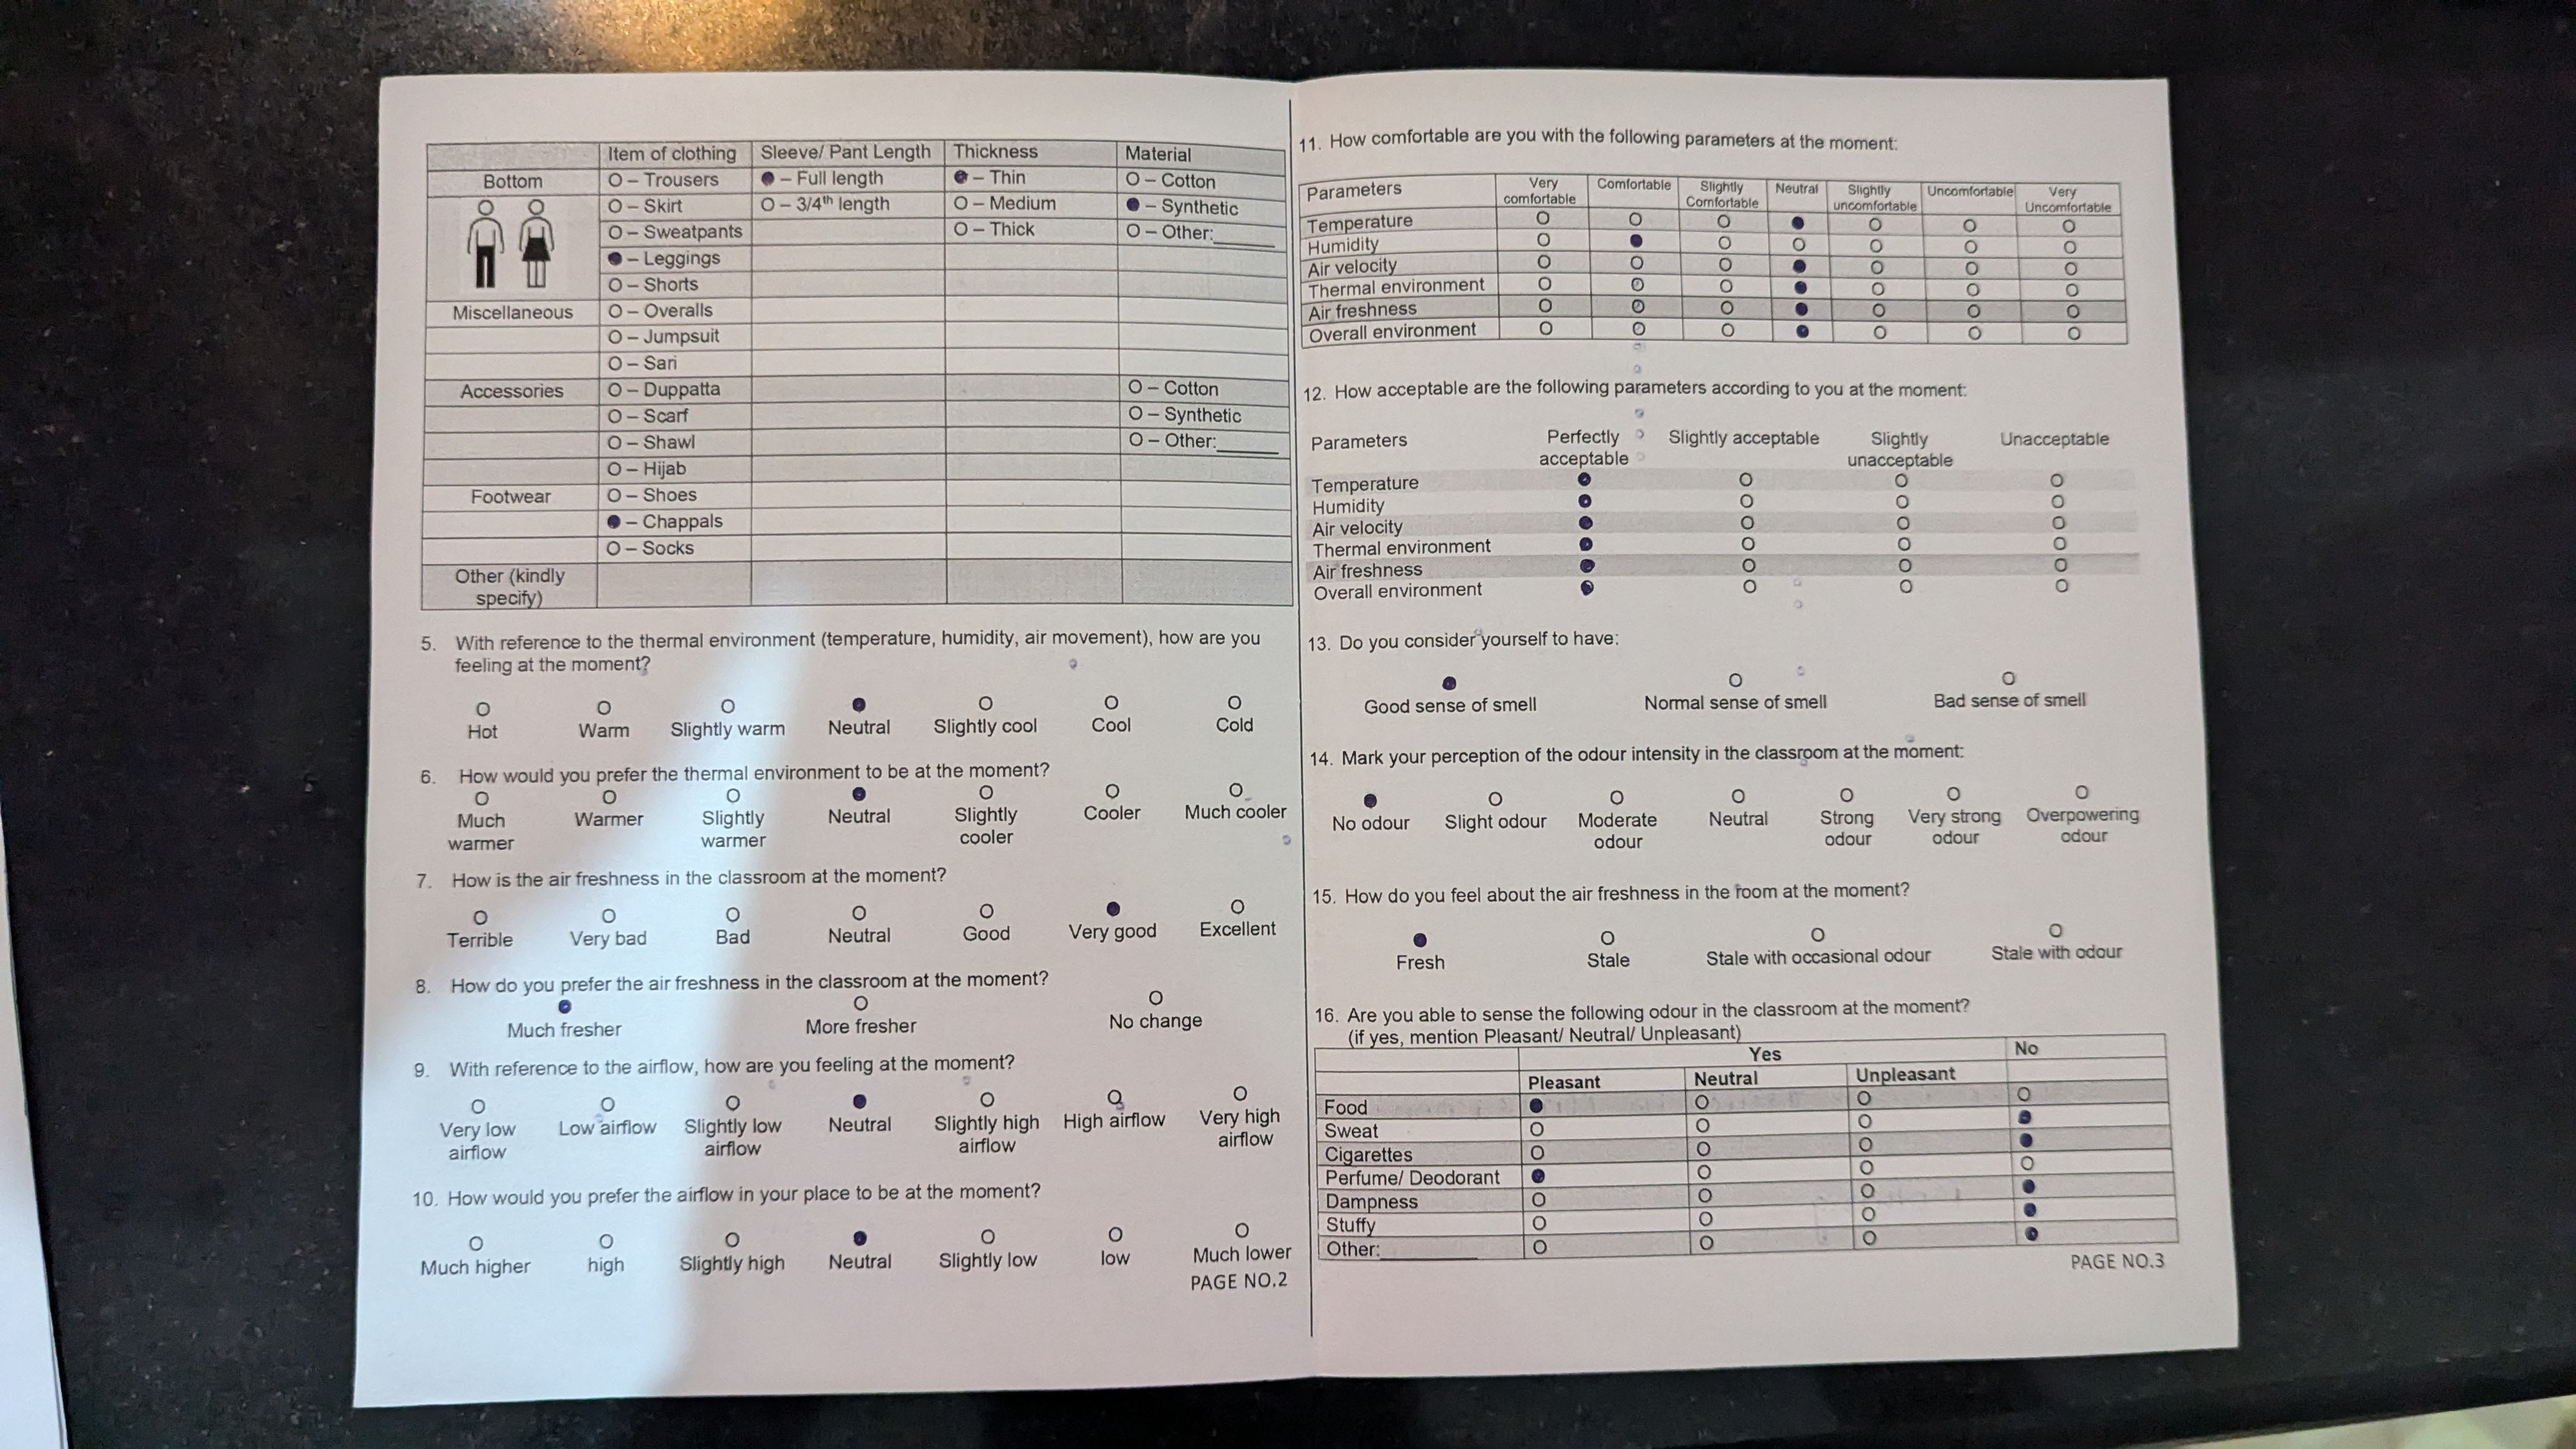 Item of clothing Sleeve/ Pant Length Thickness Material
Bottom O – Trousers ● – Full length ● – Thin O – Cotton
O – Skirt O – 3/4th length O – Medium ● – Synthetic
O – Sweatpants O – Thick O – Other:______
● – Leggings
O – Shorts
Miscellaneous O – Overalls
O – Jumpsuit
O – Sari
Accessories O – Duppatta O – Cotton
O – Scarf O – Synthetic
O – Shawl O – Other:______
O – Hijab
Footwear O – Shoes
● – Chappals
O – Socks
Other (kindly
specify)
5. With reference to the thermal environment (temperature, humidity, air movement), how are you
feeling at the moment?
O O O ● O O O
Hot Warm Slightly warm Neutral Slightly cool Cool Cold
6. How would you prefer the thermal environment to be at the moment?
O O O ● O O O
Much Warmer Slightly Neutral Slightly Cooler Much cooler
warmer warmer cooler
7. How is the air freshness in the classroom at the moment?
O O O O O ● O
Terrible Very bad Bad Neutral Good Very good Excellent
8. How do you prefer the air freshness in the classroom at the moment?
● O O
Much fresher More fresher No change
9. With reference to the airflow, how are you feeling at the moment?
O O O ● O O O
Very low Low airflow Slightly low Neutral Slightly high High airflow Very high
airflow airflow airflow airflow
10. How would you prefer the airflow in your place to be at the moment?
O O O ● O O O
Much higher high Slightly high Neutral Slightly low low Much lower
PAGE NO.2
11. How comfortable are you with the following parameters at the moment:
Parameters Very Comfortable Slightly Neutral Slightly Uncomfortable Very
comfortable Comfortable uncomfortable Uncomfortable
Temperature O O O ● O O O
Humidity O ● O O O O O
Air velocity O O O ● O O O
Thermal environment O O O ● O O O
Air freshness O O O ● O O O
Overall environment O O O ● O O O
12. How acceptable are the following parameters according to you at the moment:
Parameters Perfectly Slightly acceptable Slightly Unacceptable
acceptable unacceptable
Temperature ● O O O
Humidity ● O O O
Air velocity ● O O O
Thermal environment ● O O O
Air freshness ● O O O
Overall environment ● O O O
13. Do you consider yourself to have:
● O O
Good sense of smell Normal sense of smell Bad sense of smell
14. Mark your perception of the odour intensity in the classroom at the moment:
● O O O O O O
No odour Slight odour Moderate Neutral Strong Very strong Overpowering
odour odour odour odour
15. How do you feel about the air freshness in the room at the moment?
● O O O
Fresh Stale Stale with occasional odour Stale with odour
16. Are you able to sense the following odour in the classroom at the moment?
(if yes, mention Pleasant/ Neutral/ Unpleasant)
Yes No
Pleasant Neutral Unpleasant
Food ● O O O
Sweat O O O ●
Cigarettes O O O ●
Perfume/ Deodorant ● O O O
Dampness O O O ●
Stuffy O O O ●
Other:________ O O O ●
PAGE NO.3